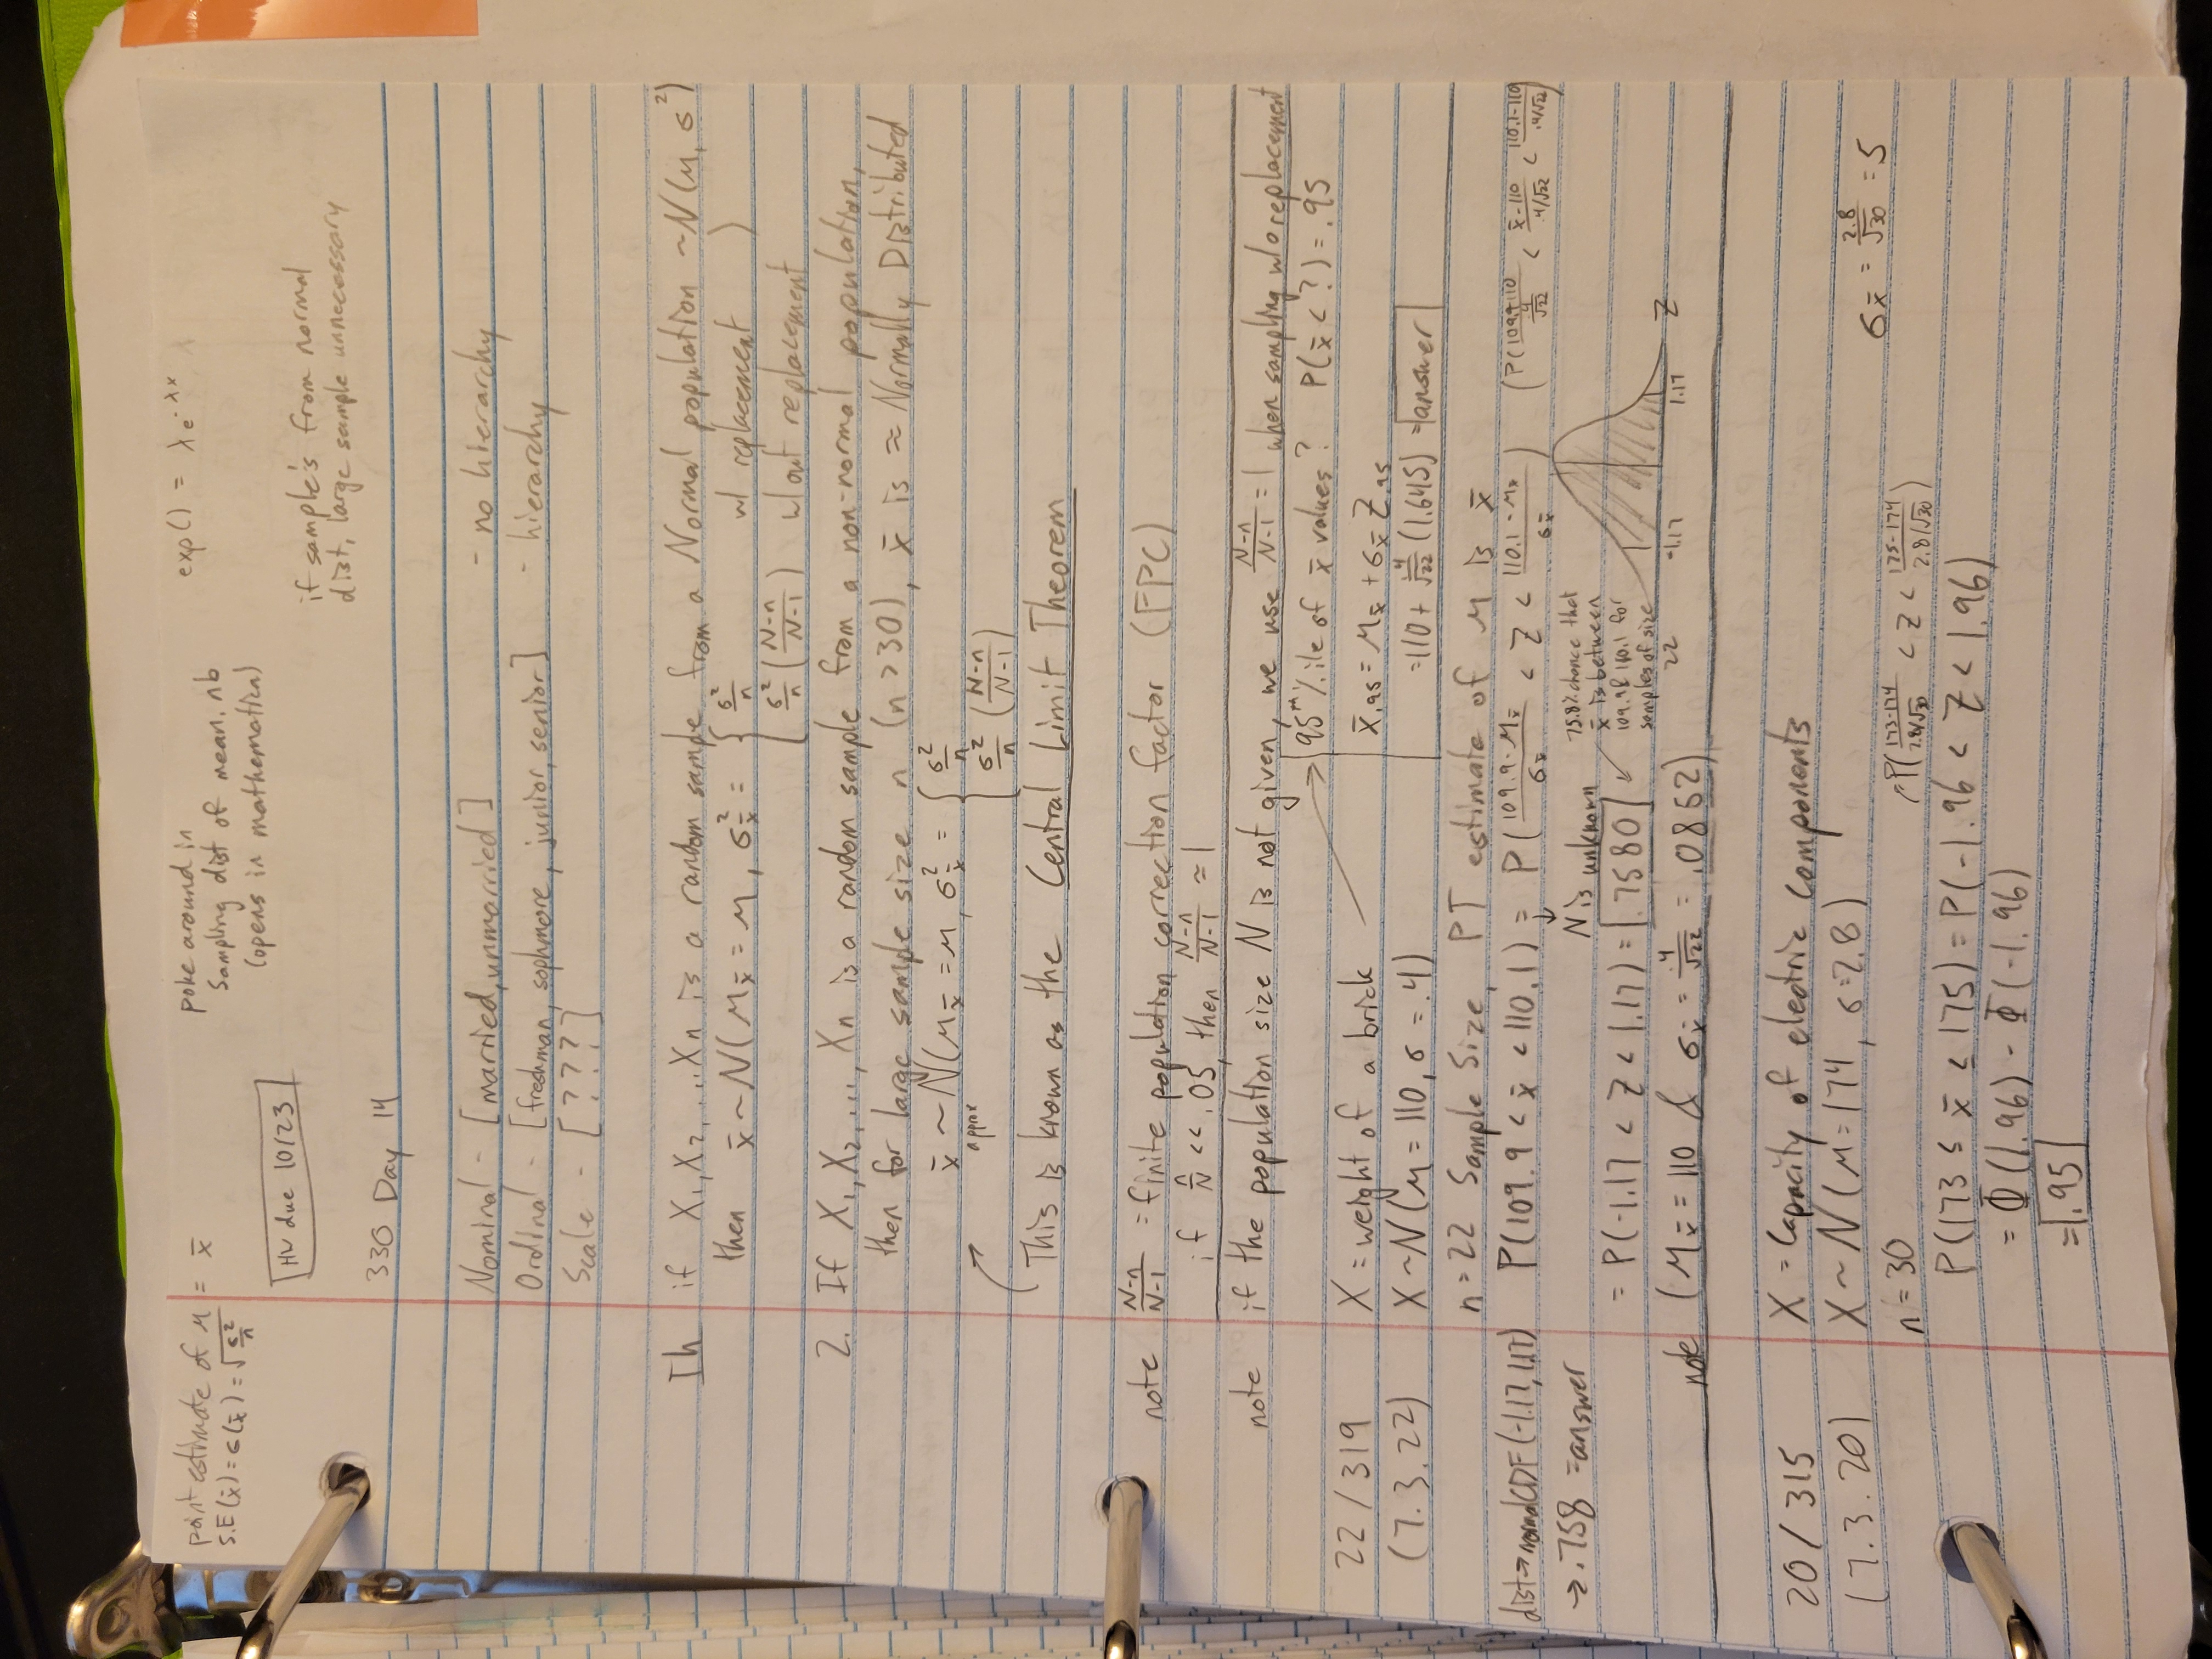 point estimate of μ = x̄
S.E(x̄) = σ(x̄) = √(σ²/n)
poke around in
Sampling dist of mean.nb
(opens in mathematica)
exp() = λe^-λx
HW due 10/23
if sample's from normal
dist, large sample unnecessary
330 Day 14
Nominal - [married, unmarried] - no hierarchy
Ordinal - [freshman, sophmore, junior, senior] - hierarchy
Scale - [???]
Th if X₁, X₂, ... Xn is a random sample from a Normal population ~N(μ, σ²)
then x̄ ~ N(μx̄ = μ, σ²x̄ = { σ²/n w/ replacement )
σ²/n ((N-n)/(N-1)) w/out replacement
2. If X₁, X₂, ..., Xn is a random sample from a non-normal population,
then for large sample size n (n > 30), x̄ is ≈ Normally Distributed
x̄ ~ N(μx̄ = μ, σ²x̄ = { σ²/n
approx
σ²/n ((N-n)/(N-1))
This is known as the Central Limit Theorem
note (N-n)/(N-1) = finite population correction factor (FPC)
if n/N << .05, then (N-n)/(N-1) ≈ 1
note if the population size N is not given, we use (N-n)/(N-1) = 1 when sampling w/o replacement
95th %ile of x̄ values? P(x̄ < ?) = .95
x̄.95 = μx̄ + σx̄ Z.95
= 110 + .4/√22 (1.645) = answer
22/319 X = weight of a brick
(7.3.22) X~N(μ = 110, σ = .4)
n = 22 Sample Size, PT estimate of μ is x̄
dist → normalCDF(-1.17, 1.17)
→ .758 = answer
P(109.9 < x̄ < 110.1) = P((109.9 - μx̄)/σx̄ < Z < (110.1 - μx̄)/σx̄) (P((109.9-110)/(.4/√22) < (x̄-110)/(.4/√22) < (110.1-110)/(.4/√22))
N is unknown
75.8% chance that
x̄ is between
109.9 & 110.1 for
samples of size
22
= P(-1.17 < Z < 1.17) = .7580
-1.17 1.17 Z
note (μx̄ = 110 & σx̄ = .4/√22 = .0852)
20/315 X = Capacity of electric components
(7.3.20) X~N(μ = 174, σ = 2.8)
σx̄ = 2.8/√30 = 5
n = 30
P((173-174)/(2.8/√30) < Z < (175-174)/(2.8/√30))
P(173 ≤ x̄ ≤ 175) = P(-1.96 < Z < 1.96)
= Φ(1.96) - Φ(-1.96)
= .95